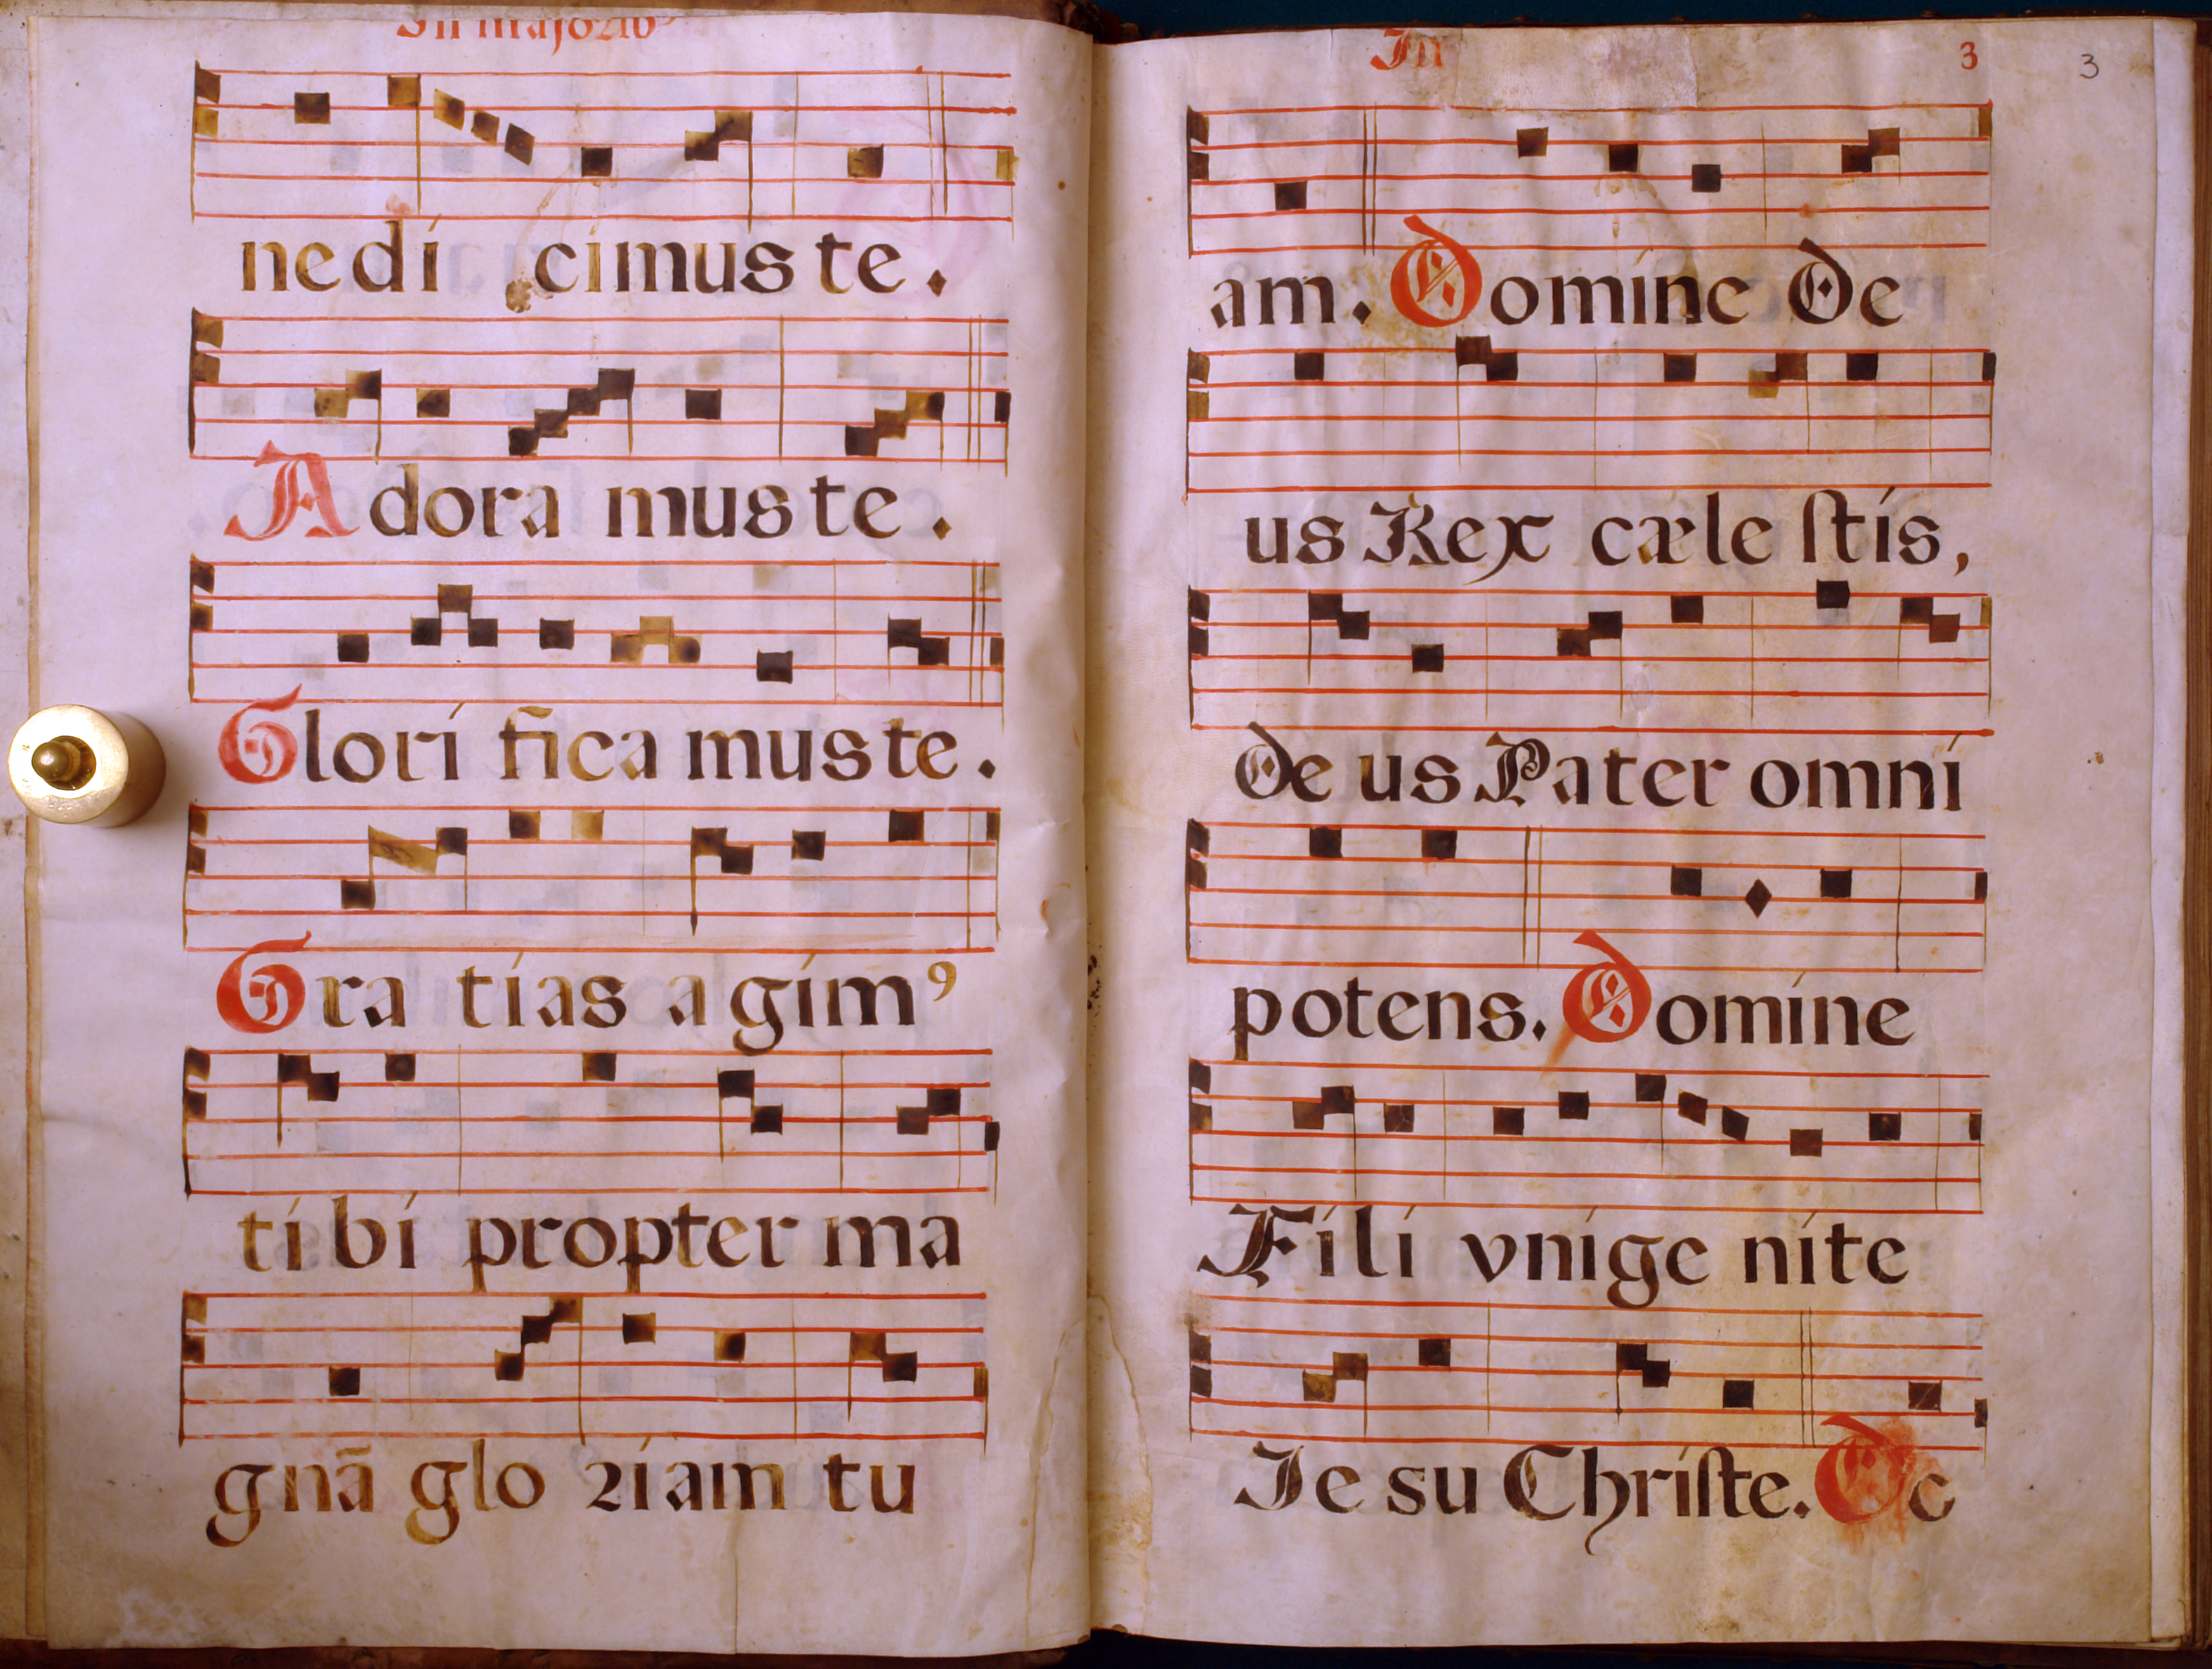 In majorib⁹
nedi cimus te.
Adora mus te.
Glori fica mus te.
Gra tias a gim⁹
tibi propter ma
gnã glo riam tu
In
3 3
am. Domine De
us Rex cæle ſtis,
De us Pater omni
potens. Domine
Fili vnige nite
Ie su Chriſte. Do